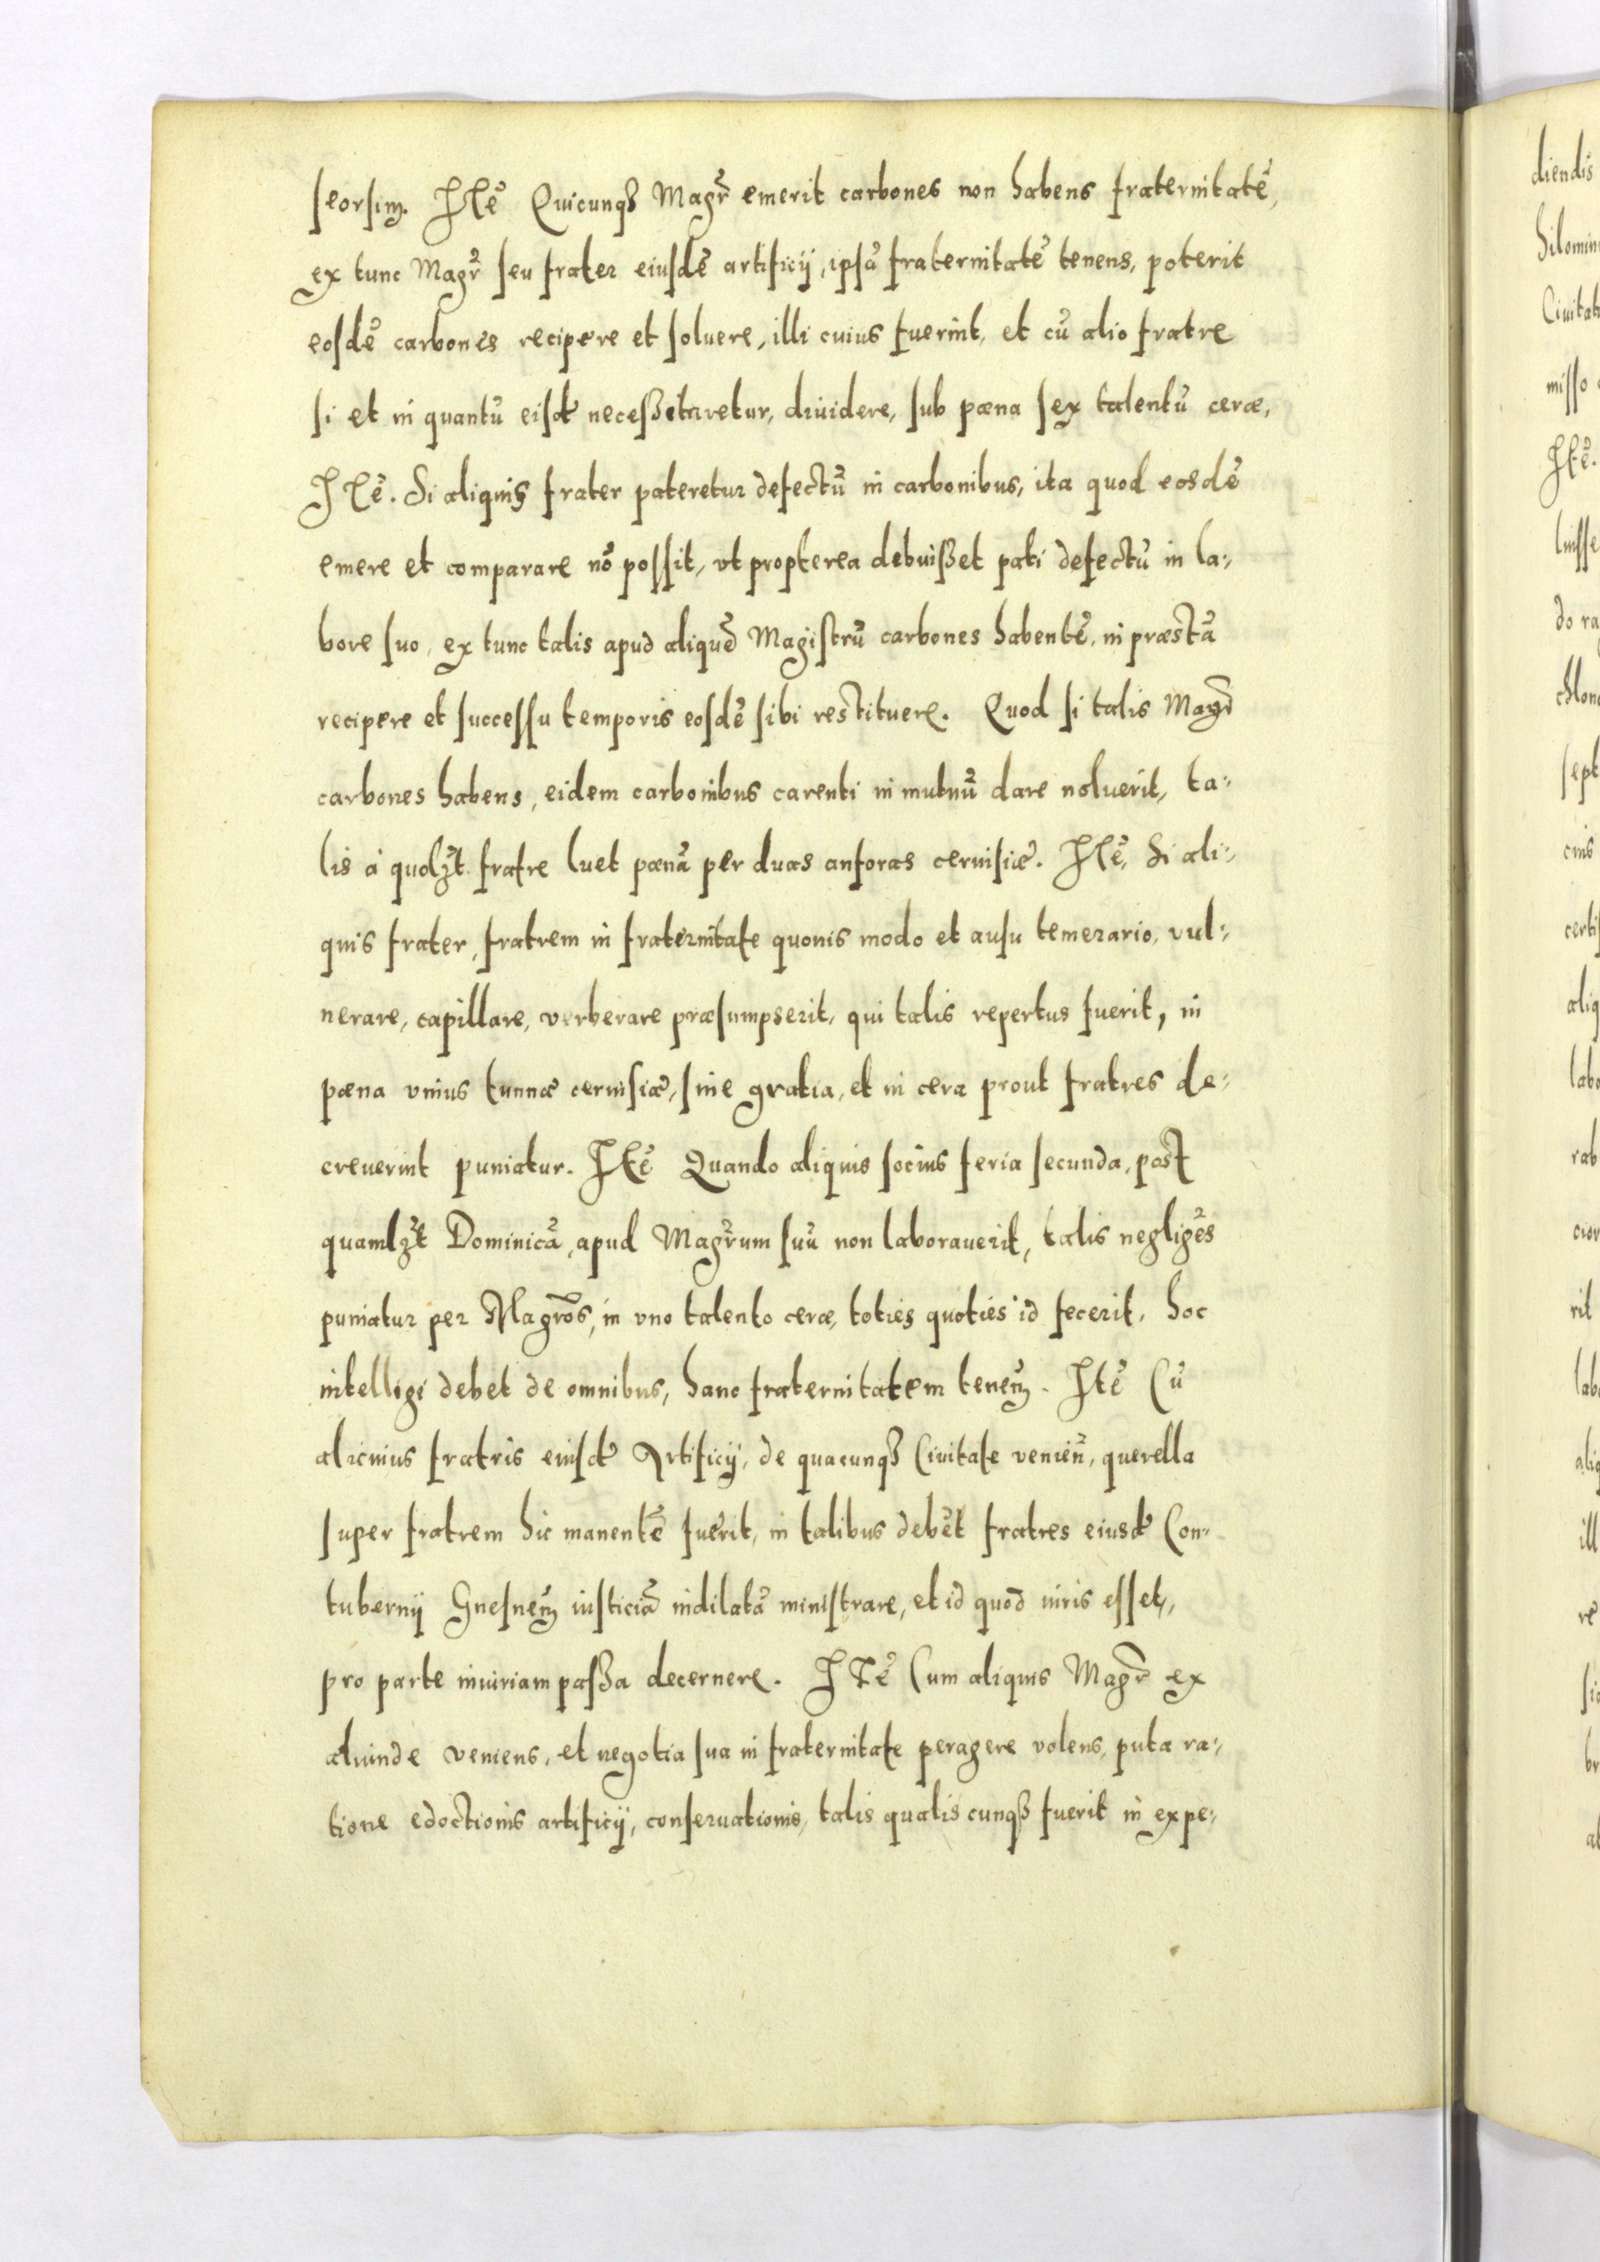 seorsim. Itē Quicunqз Magr̄ emerit carbones non habens fraternitatē,
ex tunc Magr̄ seu frater eiusdē artificij, ipsā fraternitatē tenens, poterit
eosdē carbones recipere et soluere, illi cuius fuerint, et cū alio fratre
si et in quantū eisd̄ necessetaretur, diuidere, sub pœna sex talentū ceræ,
Itē. Si aliquis frater pateretur defectū in carbonibus, ita quod eosdē
emere et comparare nō possit, vt propterea debuisset pati defectū in la-
bore suo, ex tunc talis apud aliquē Magistrū carbones habentē, in præstā
recipere et successu temporis eosdē sibi restituere. Quod si talis Magr̄
carbones habens, eidem carbonibus carenti in mutuū dare noluerit, ta-
lis à quolꝫt fratre luet pœnā per duas anforas ceruisiæ. Itē, Si ali-
quis frater, fratrem in fraternitate quouis modo et ausu temerario, vul-
nerare, capillare, verberare præsumpserit, qui talis repertus fuerit, in
pœna vnius tunnæ ceruisiæ, sine gratia, et in cera prout fratres de-
creuerint puniatur. Itē Quando aliquis socius feria secunda, post
quamlꝫt Dominicā, apud Magr̄um suū non laborauerit, talis negligēs
puniatur per Magr̄os, in vno talento ceræ, toties quoties id fecerit. hoc
intelligi debet de omnibus, hanc fraternitatem teneñ. Itē Cū
alicuius fratris eiusd̄ Artificij, de quacunqз Ciuitate venieñ, querella
super fratrem hic manentē fuerit, in talibus debēt fratres eiusd̄ Con-
tubernij Gnesneñ iusticiā indilatā ministrare, et id quod iuris esset,
pro parte iniuriam passa decernere. Itē Cum aliquis Magr̄ ex
aliunde veniens, et negotia sua in fraternitate peragere volens, puta ra-
tione edoctionis artificij, conseruationis, talis qualiscunqз fuerit in expe-